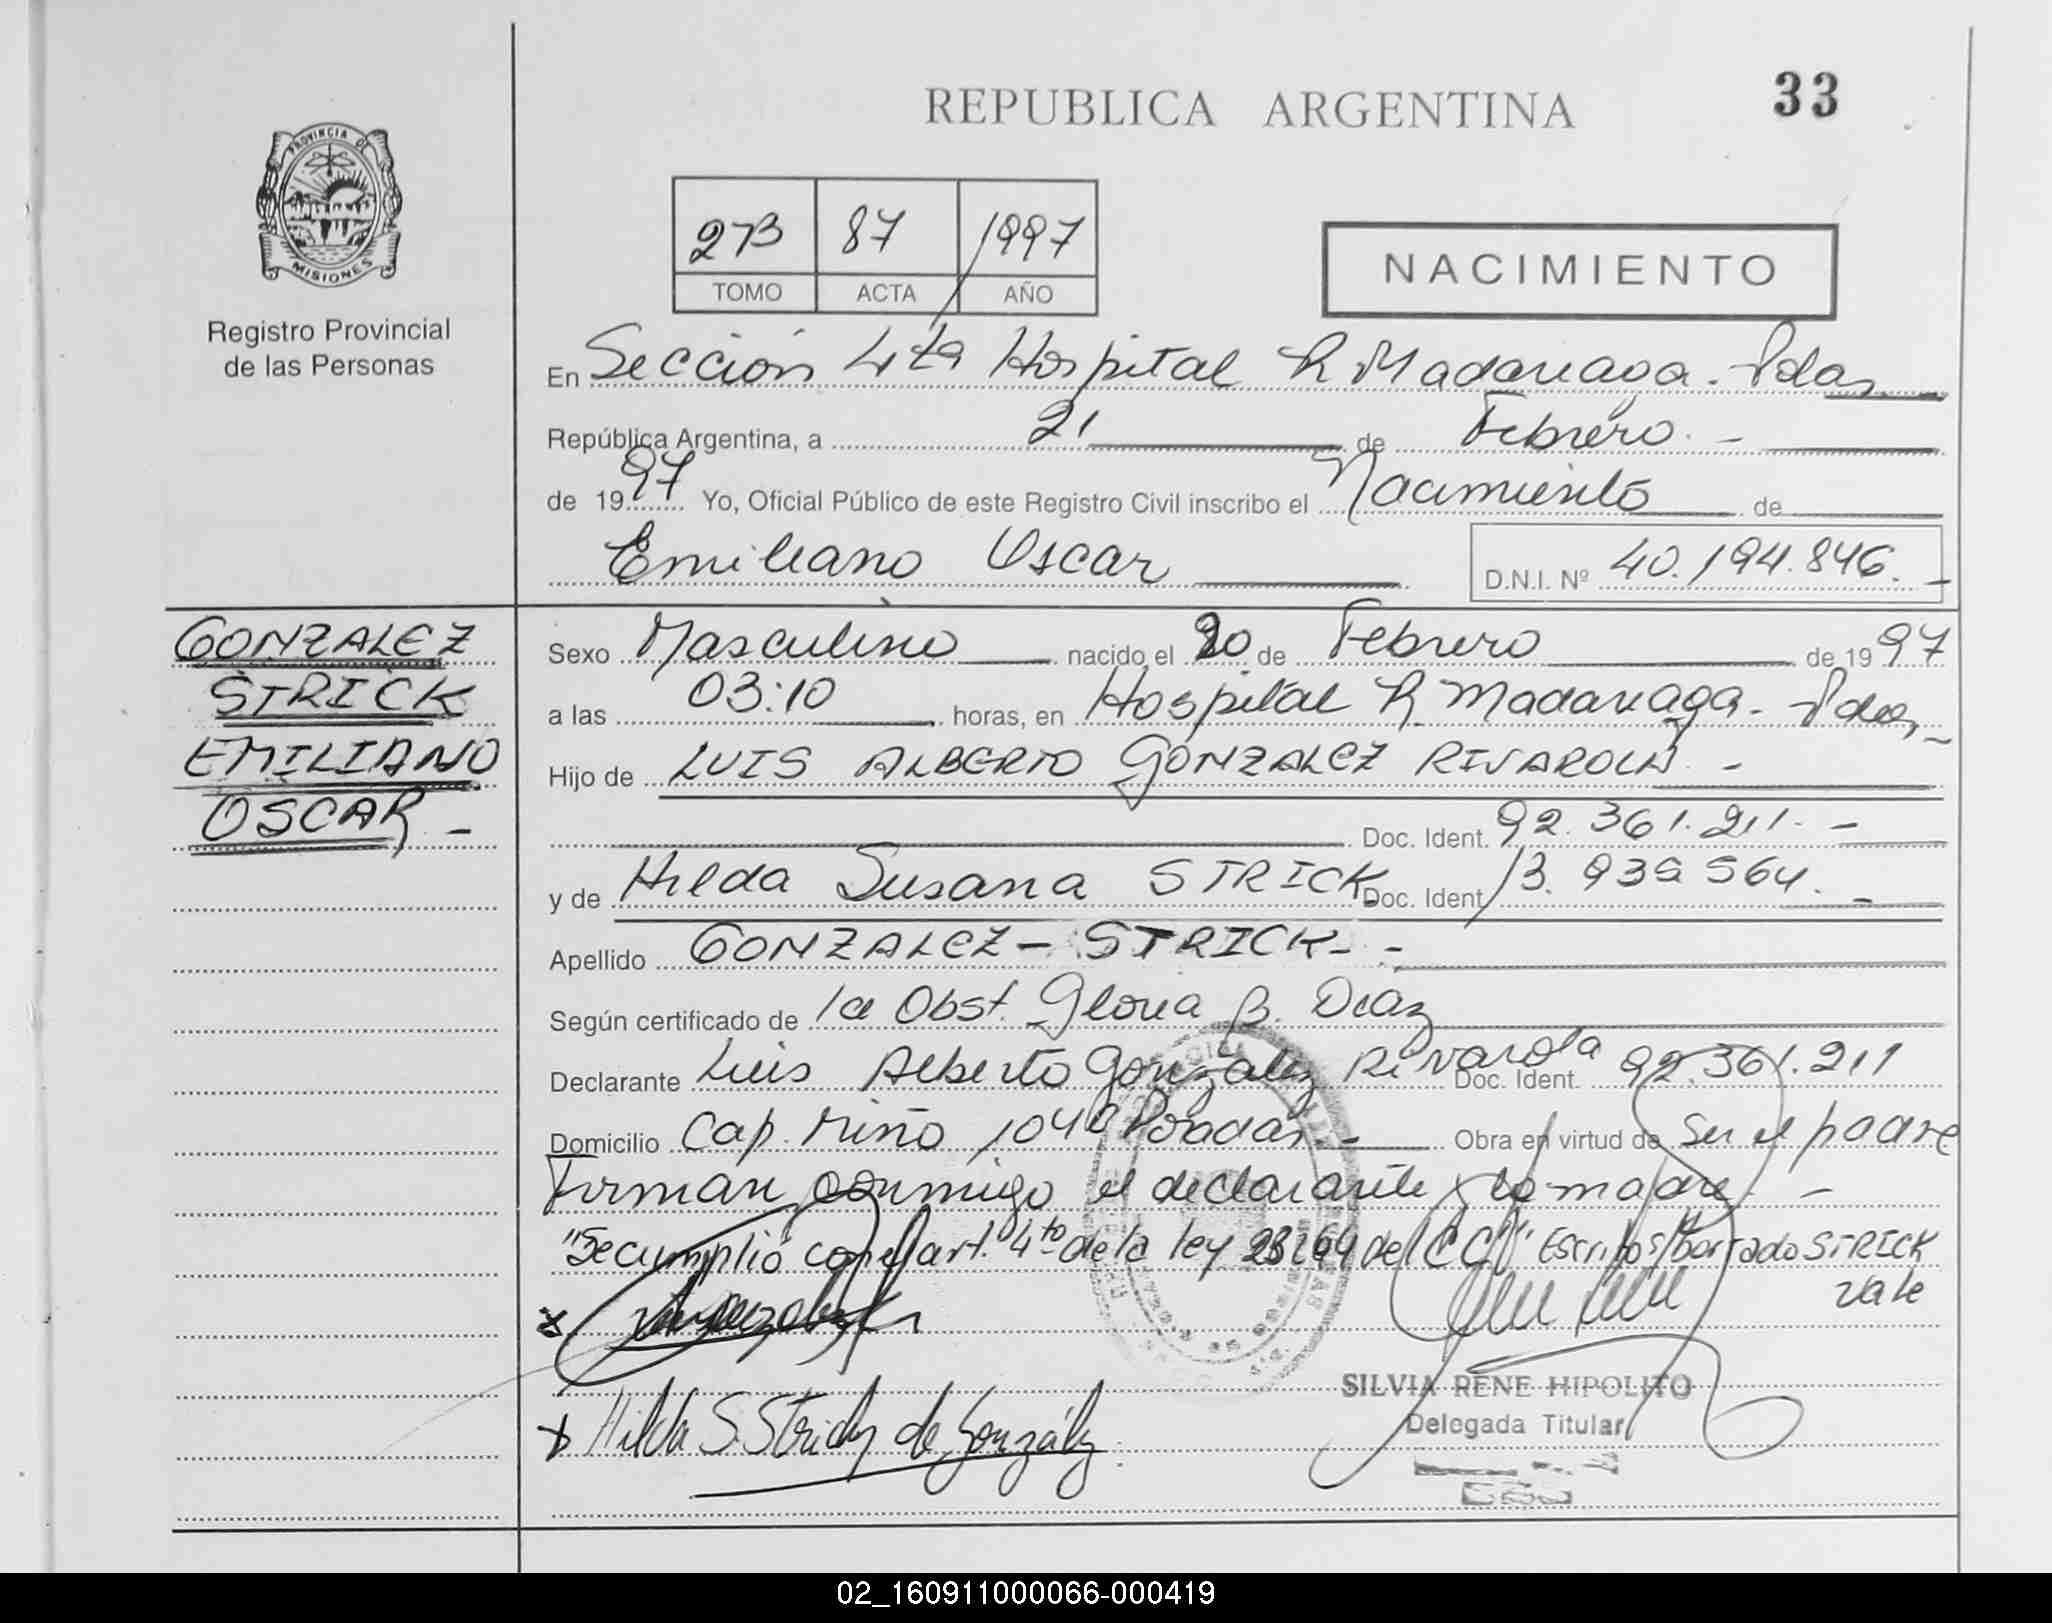 REPUBLICA ARGENTINA
33
PROVINCIA DE
MISIONES
Registro Provincial
de las Personas
273 87 1997
TOMO ACTA AÑO
NACIMIENTO
En Sección 4ta Hospital R Madariaga. Pdas
República Argentina, a 21 de Febrero. -
de 1997 Yo, Oficial Público de este Registro Civil inscribo el Nacimiento de
Emiliano Oscar
D.N.I. Nº 40.194.846. -
GONZALEZ
STRICK
EMILIANO
OSCAR -
Sexo Masculino nacido el 20 de Febrero de 1997
a las 03:10 horas, en Hospital R Madariaga. Pdas, -
Hijo de LUIS ALBERTO GONZALEZ RIVAROLA -
Doc. Ident. 92.361.211. -
y de Hilda Susana STRICK Doc. Ident. 13.939 564. -
Apellido GONZALEZ - STRICK - -
Según certificado de la Obst. Gloria B. Diaz
Declarante Luis Alberto González Rivarola Doc. Ident. 92.361.211
Domicilio Cap. Miño 1042 Posadas - Obra en virtud de Ser el padre
Firman conmigo el declarante y la madre. -
"Se cumplió con el art. 4to de la ley 23264 del CC" Escritos/borrado STRICK
vale
Hilda S. Strick de González
SILVIA RENE HIPOLITO
Delegada Titular
02_160911000066-000419